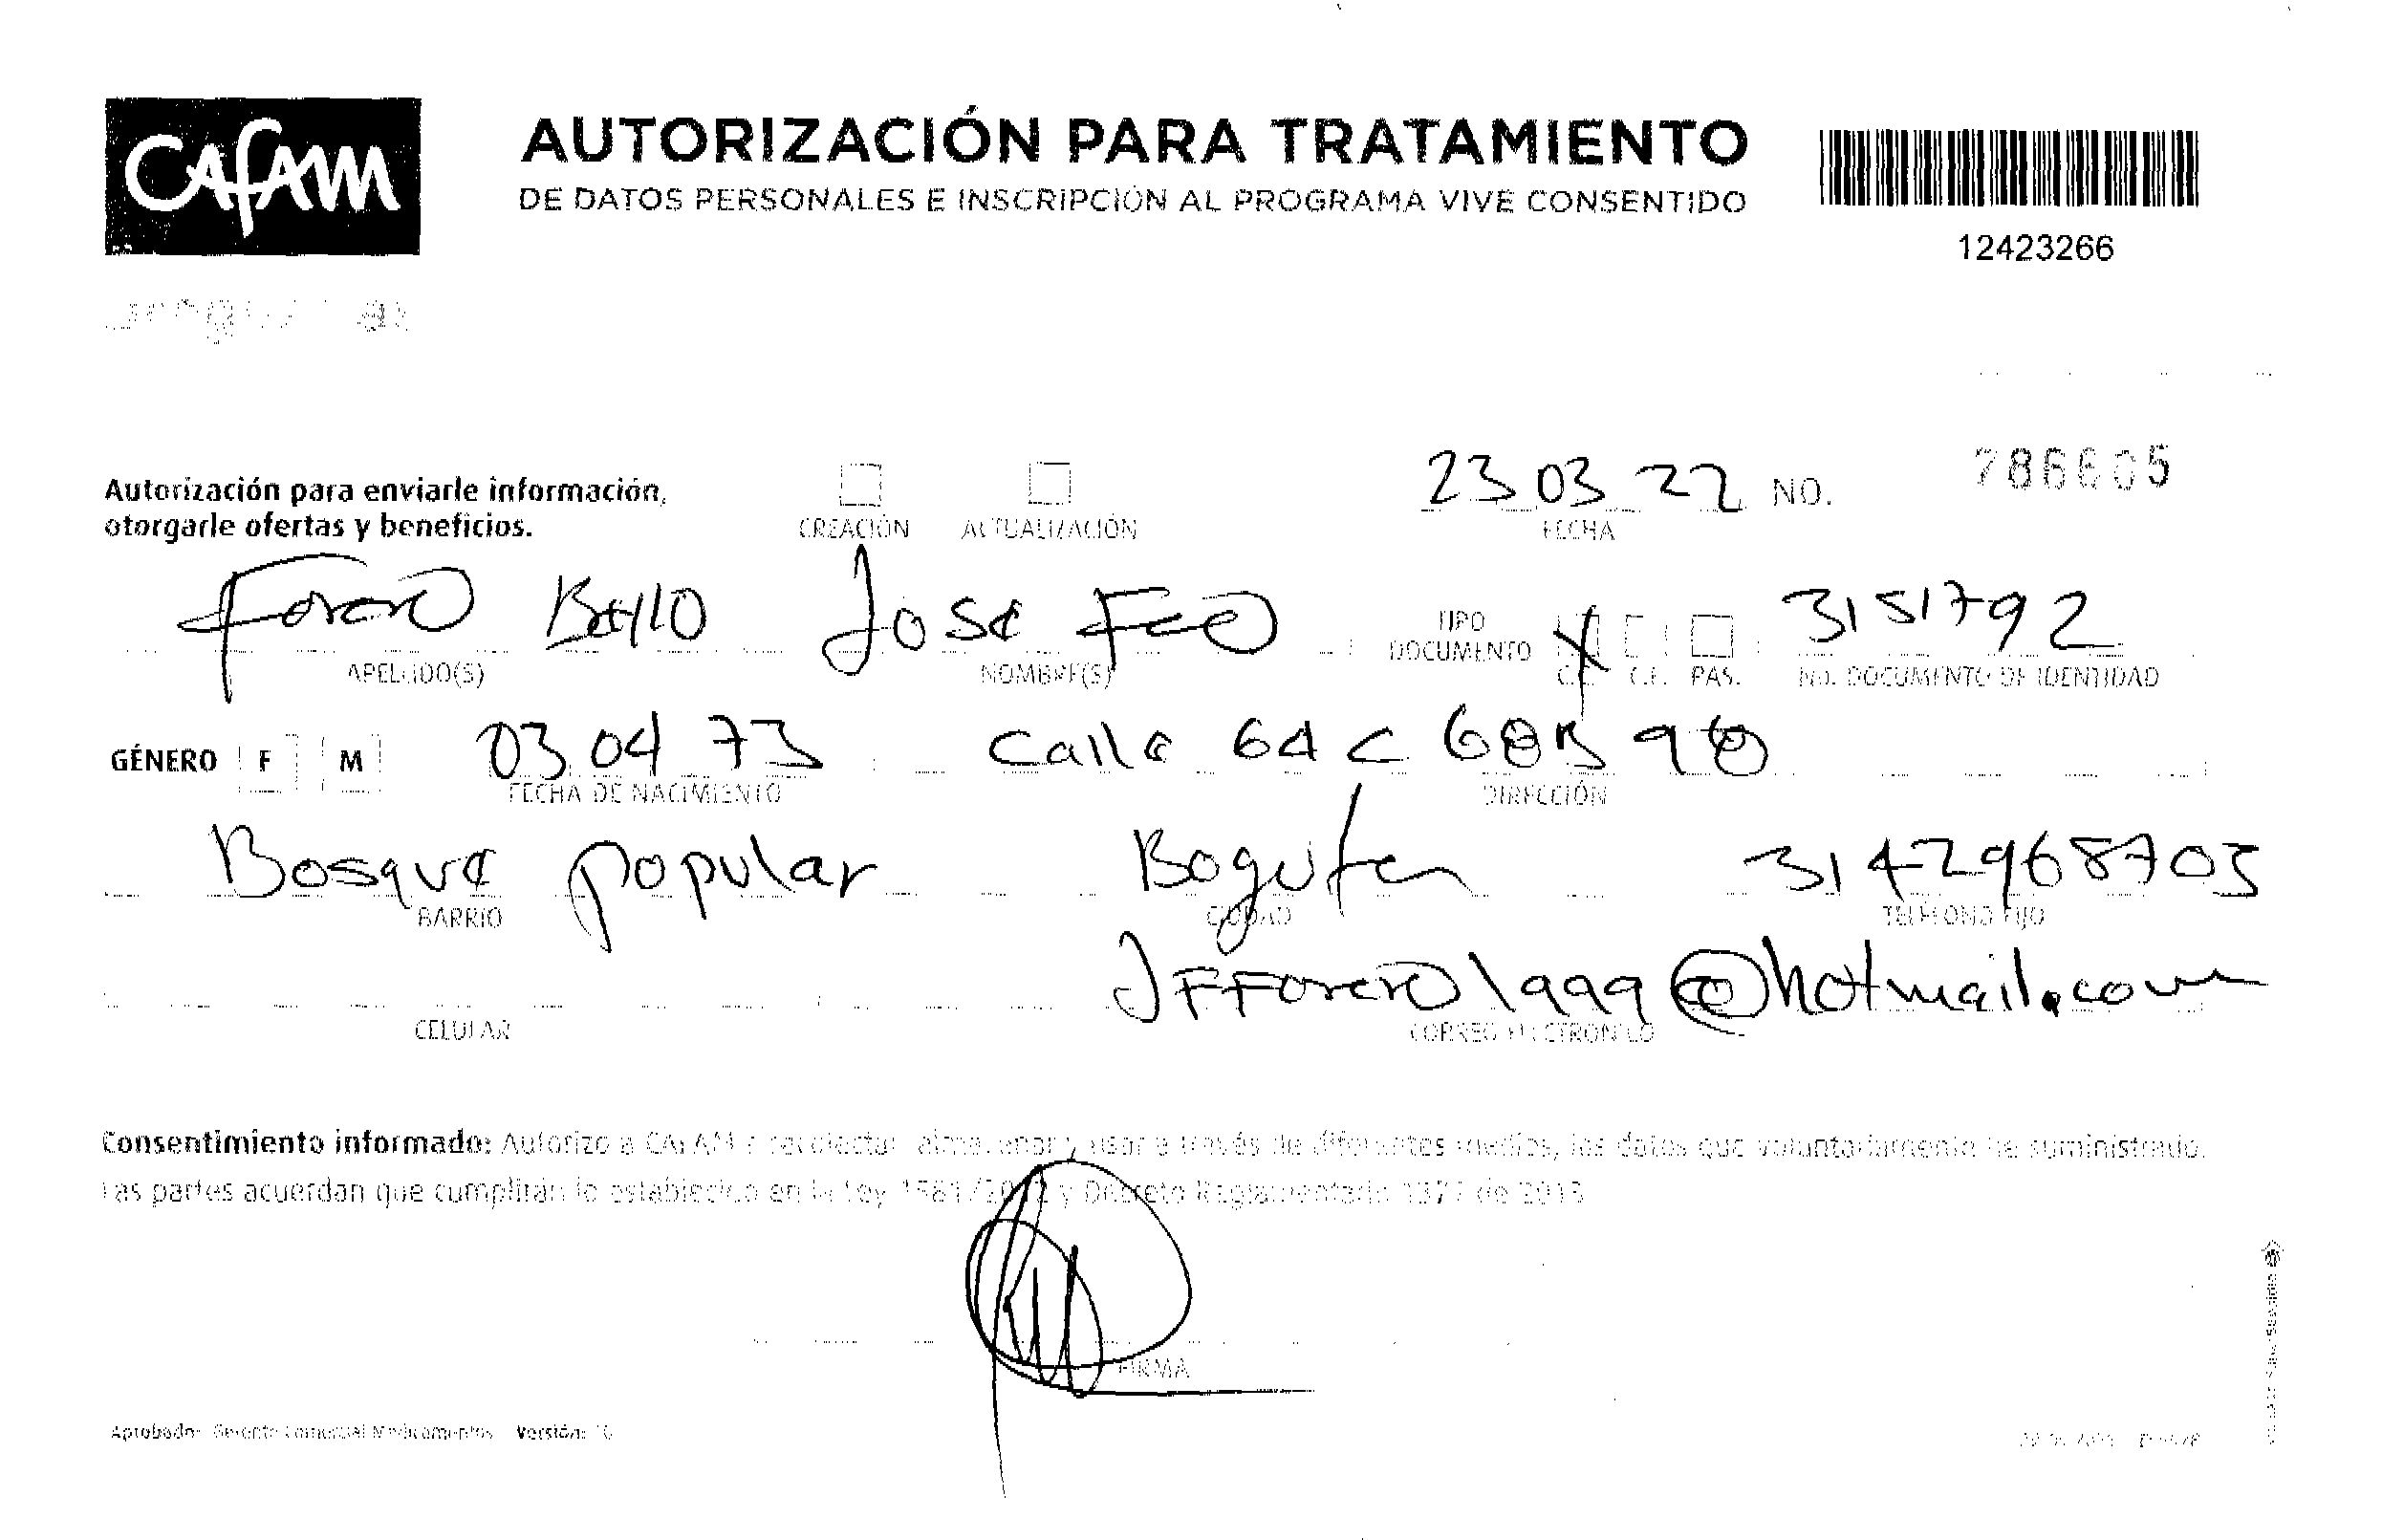 Cafam
AUTORIZACIÓN PARA TRATAMIENTO
DE DATOS PERSONALES E INSCRIPCIÓN AL PROGRAMA VIVE CONSENTIDO
12423266
Autorización para enviarle información,
otorgarle ofertas y beneficios.
CREACIÓN ACTUALIZACIÓN
23 03 22 NO. 786605
FECHA
Forero Bello Jose Fco TIPO DOCUMENTO X 3151792
APELLIDO(S) NOMBRE(S) C.C. C.E. PAS. No. DOCUMENTO DE IDENTIDAD
GÉNERO F M 03 04 73 Calle 64 C 68B 98
FECHA DE NACIMIENTO DIRECCIÓN
Bosque popular Bogota 3142968703
BARRIO CIUDAD TELÉFONO FIJO
JFForero1999@hotmail.com
CELULAR CORREO ELECTRÓNICO
Consentimiento informado: Autorizo a CAFAM a recolectar, almacenar y usar a través de diferentes medios, los datos que voluntariamente he suministrado.
Las partes acuerdan que cumplirán lo establecido en la Ley 1581/2012 y Decreto Reglamentario 1377 de 2013
FIRMA
Aprobado: Gerente Comercial Medicamentos Versión: